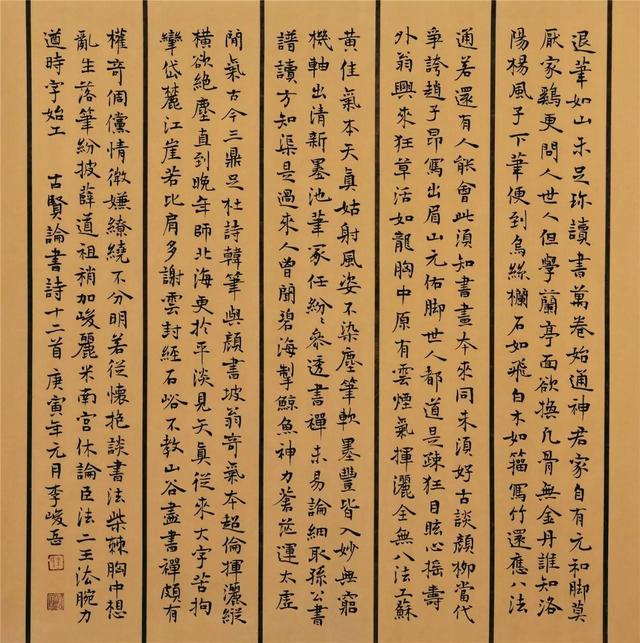 退筆如山未足珎讀書萬卷始通神君家自有元和脚莫
厭家鷄更問人世人但學蘭亭面欲換凡骨無金丹誰知洛
陽楊風子下筆便到烏絲欄石如飛白木如籀寫竹還應八法
通若還有人能會此須知書畫本來同未須好古談顏柳當代
爭誇趙子昂寫出眉山元佑脚世人都道是疎狂目眩心摇壽
外翁興來狂草活如龍胸中原有雲煙氣揮灑全無八法工蘇
黄佳氣本天真姑射風姿不染塵筆軟墨豐皆入妙無窮
機軸出清新墨池筆冢任紛〻參透書禪未易論細取孫公書
譜讀方知渠是過來人曾聞碧海掣鯨魚神力蒼茫運太虚
間氣古今三鼎足杜詩韓筆與顏書坡翁奇氣本超倫揮灑縱
横欲絶塵直到晚年師北海更於平淡見天真從來大字苦拘
攣岱麓江崖若比肩多謝雲封經石峪不教山谷盡書禪頗有
權奇倜儻情微嫌繚繞不分明若從懷抱談書法柴棘胸中想
亂生落筆紛披薛道祖稍加峻麗米南宫休論臣法二王法腕力
遒時字始工 古賢論書詩十二首 庚寅年元月李峻